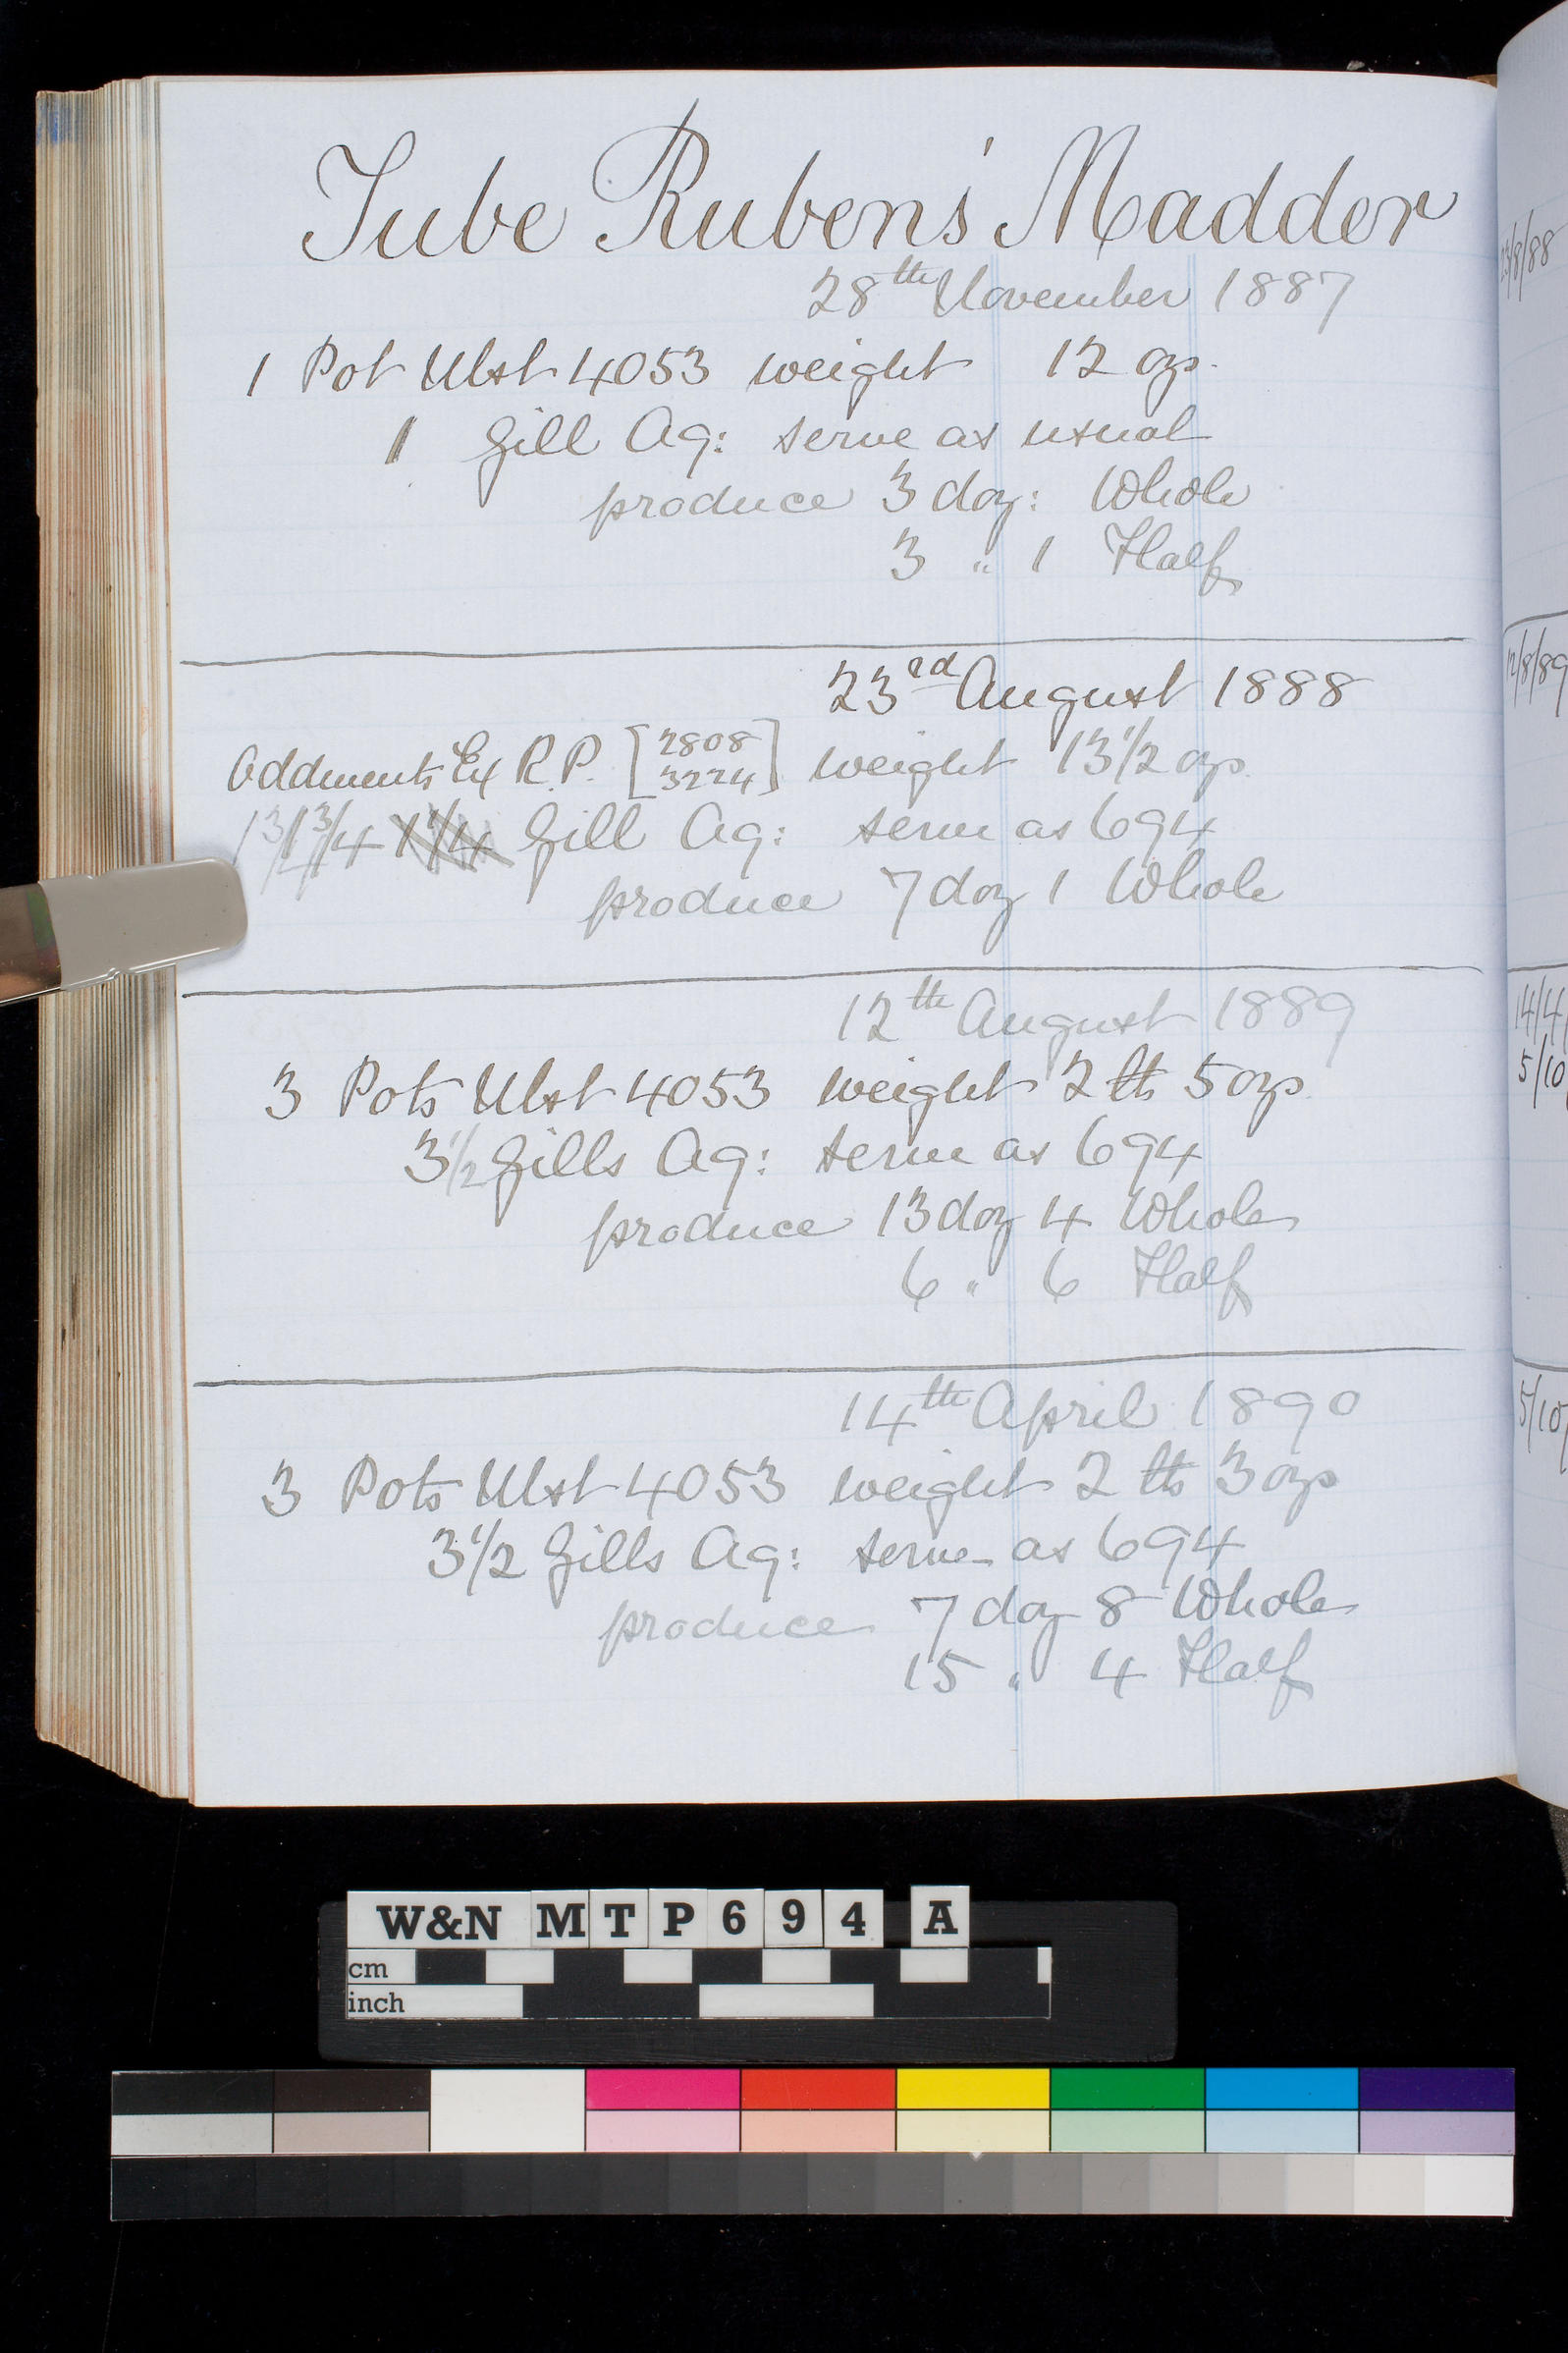 Tube Rubens' Madder
28th November 1887
1 Pot Ulst 4053 weight 12 ozs.
1 Gill Aq: serve as usual
produce 3 doz: Whole
3 " 1 Half
23rd August 1888
Oddments Ex R.P. [2808 3224] weight 13 1/2 ozs.
1 3/4 Gill Aq: serve as 694
produce 7 doz 1 Whole
12th August 1889
3 Pots Ulst 4053 weight 2 lb 5 ozs.
3 1/2 Gills Aq: serve as 694
produce 13 doz 4 Whole
6 " 6 Half
14th April 1890
3 Pots Ulst 4053 weight 2 lb 3 ozs
3 1/2 Gills Aq: serve as 694
produce 7 doz 8 Whole
15 " 4 Half
23/8/88
12/8/89
14/4
5/10
5/10
W&N MTP694 A
cm
inch